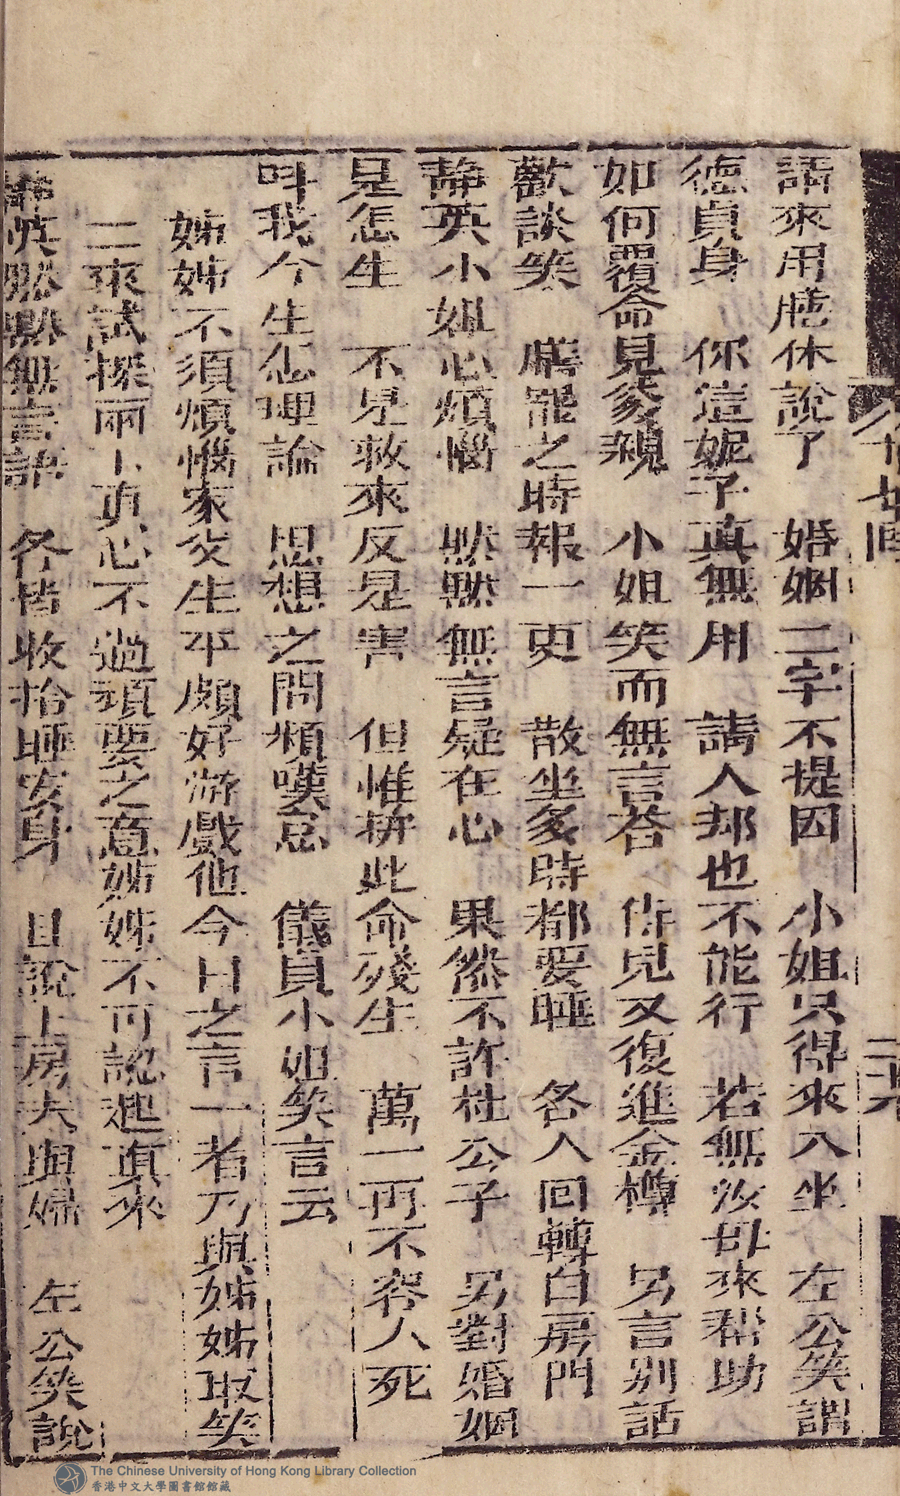 請來用膳休說了　婚姻二字不提因　小姐只得來入坐　左公笑謂
德貞身　你這妮子真無用　請人却也不能行　若無汝母來幫助
如何覆命見爹親　小姐笑而無言荅　侍兒又復進金樽　另言別話
歡談笑　膳罷之時報一更　散坐多時都要睡　各人回轉自房門
靜英小姐心煩惱　默默無言疑在心　果然不許杜公子　另對婚姻
是怎生　不是救來反是害　但惟拚此命殘生　萬一再不容人死
呌我今生怎理論　思想之間頻嘆息　儀貞小姐笑言云
姊姊不須煩惱家父生平頗好游戲他今日之言一者乃與姊姊取笑
二來試探兩下真心不過頑耍之意姊姊不可認起真來
靜英默默無言語　各皆收拾睡安身　且說上房夫與婦　左公笑說
二十九
The Chinese University of Hong Kong Library Collection
香港中文大學圖書館館藏